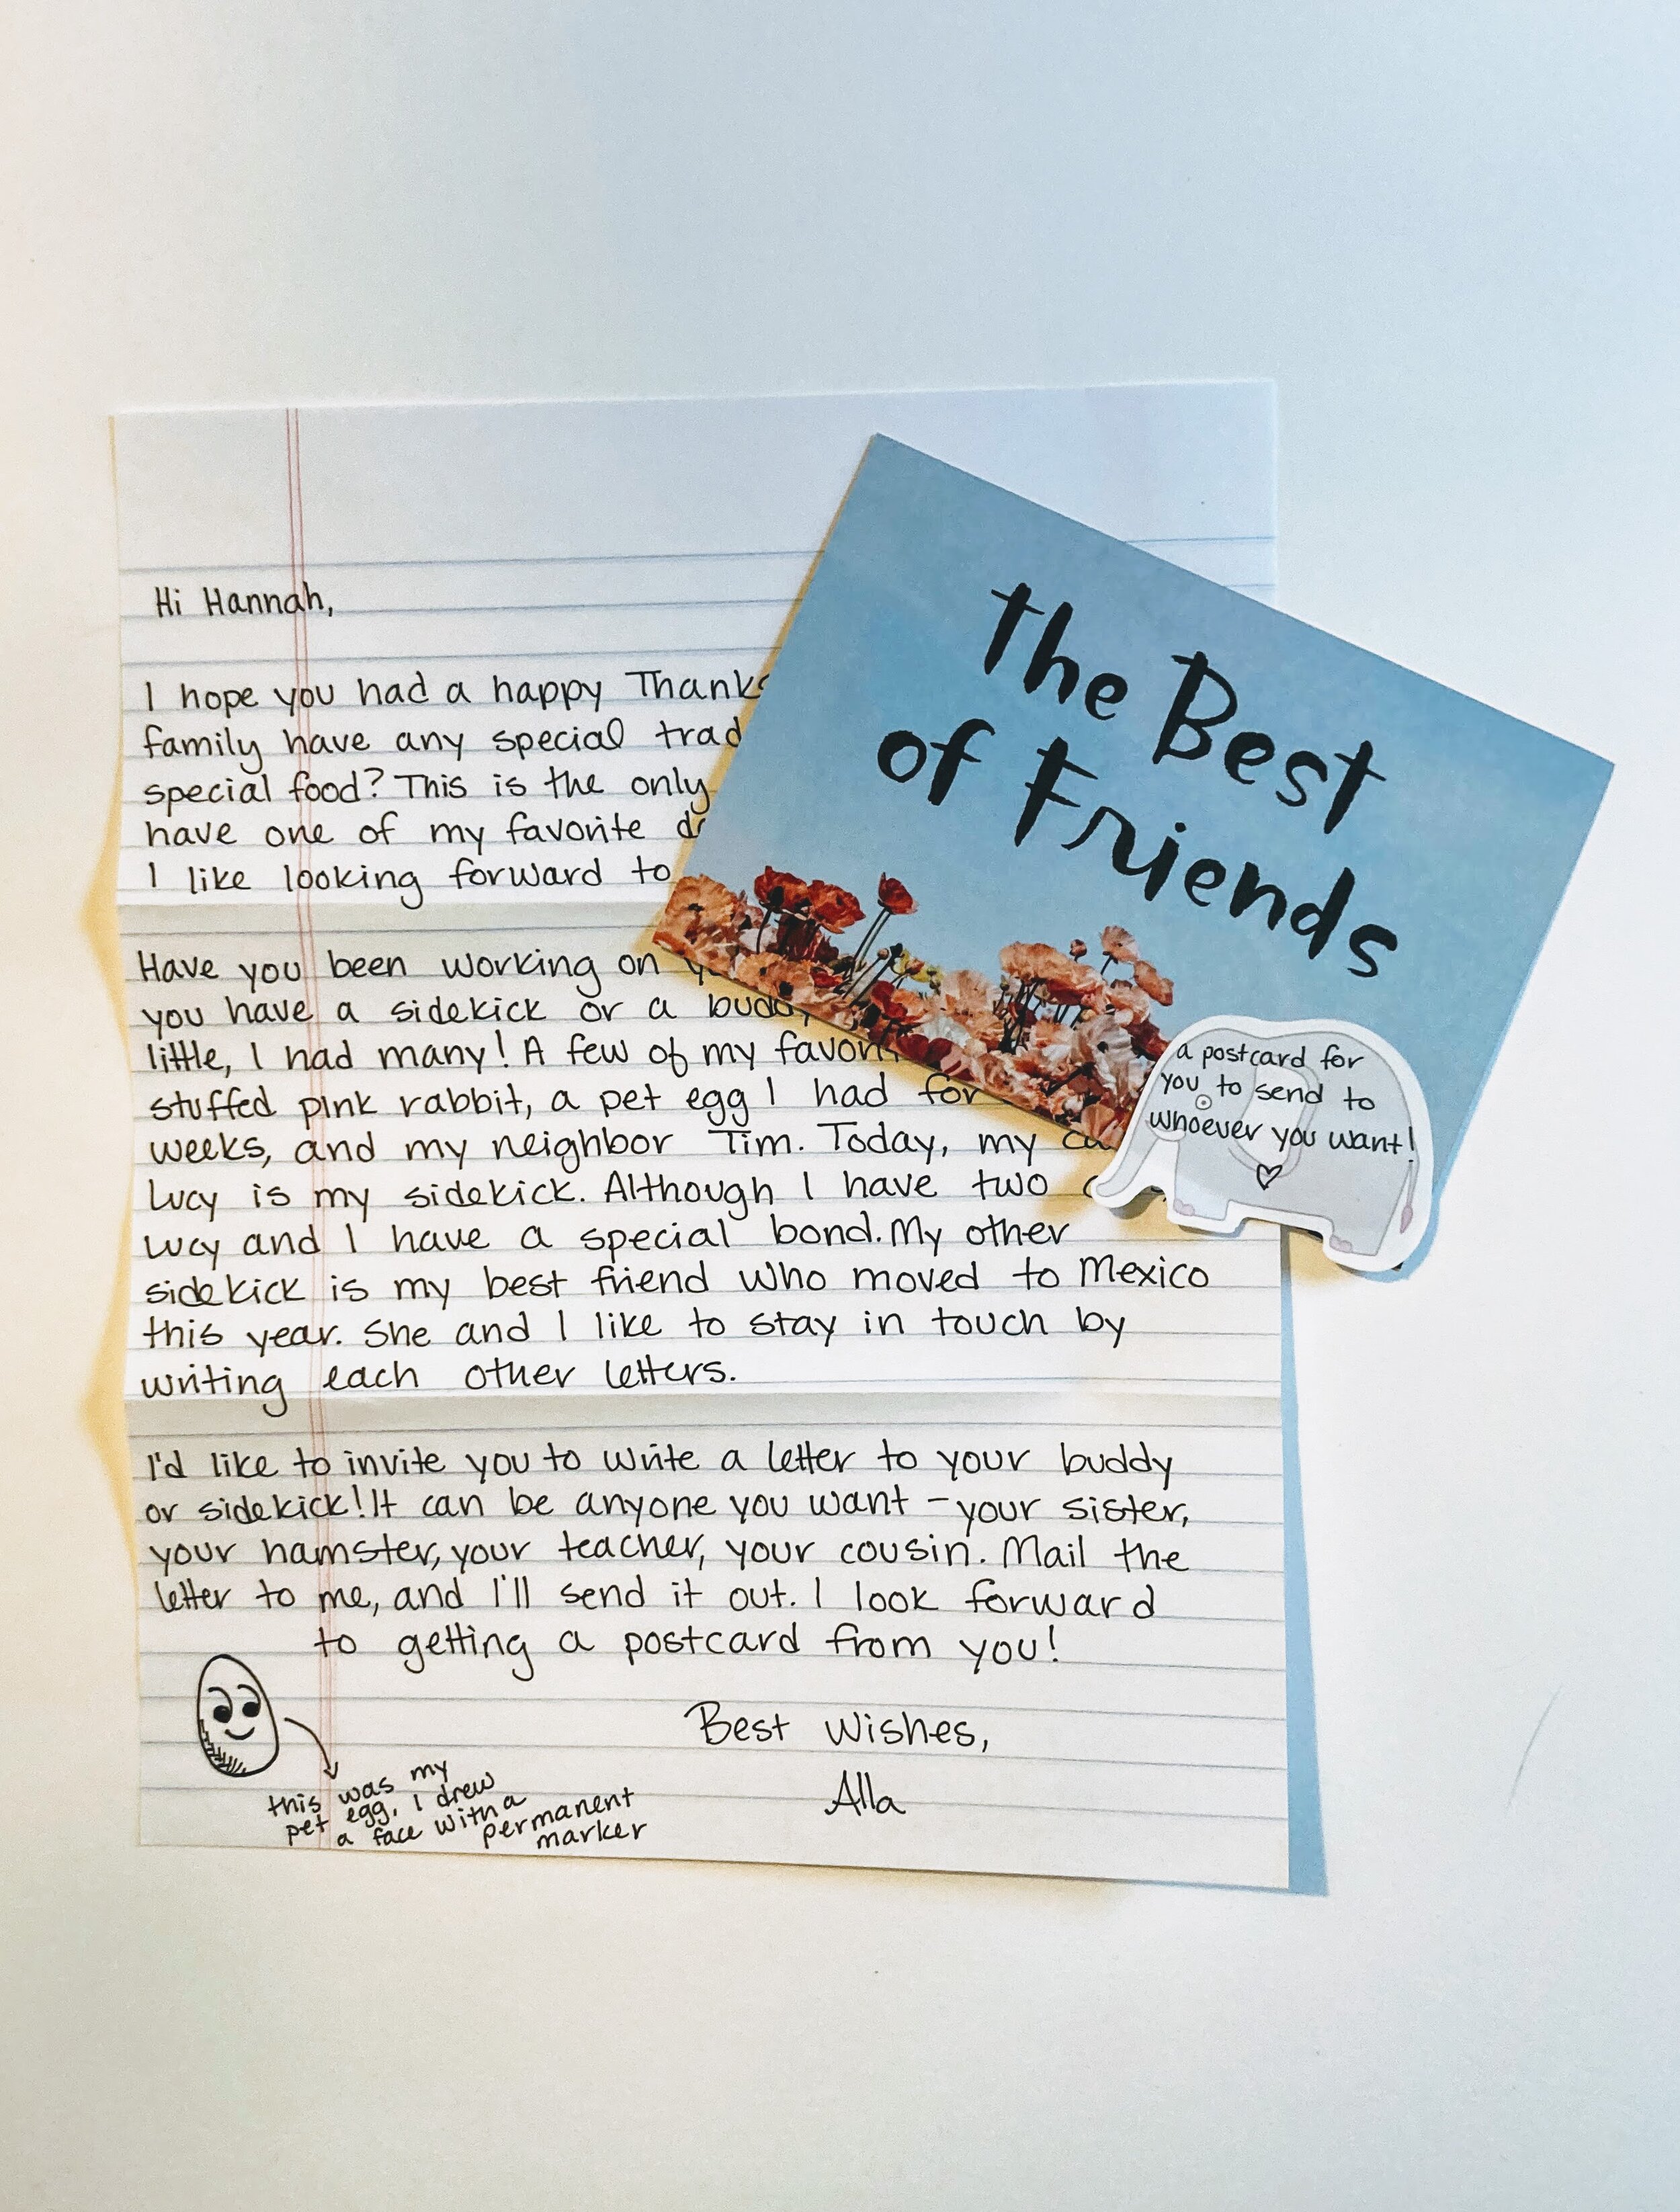 Hi Hannah,
I hope you had a happy
family have any special
special food? This is the only
have one of my favorite
I like looking forward to
Have you been working on
you have a sidekick or a buddy
little, I had many! A few of my
stuffed pink rabbit, a pet egg I had for
weeks, and my neighbor Tim. Today, my
Lucy is my sidekick. Although I have two
Lucy and I have a special bond. My other
sidekick is my best friend who moved to Mexico
this year. She and I like to stay in touch by
writing each other letters.
I'd like to invite you to write a letter to your buddy
or sidekick! It can be anyone you want - your sister,
your hamster, your teacher, your cousin. Mail the
letter to me, and I'll send it out. I look forward
to getting a postcard from you!
Best Wishes,
Alla
this was my
pet egg. I drew
a face with a
permanent
marker
The Best
of Friends
a postcard for
you to send to
whoever you want!